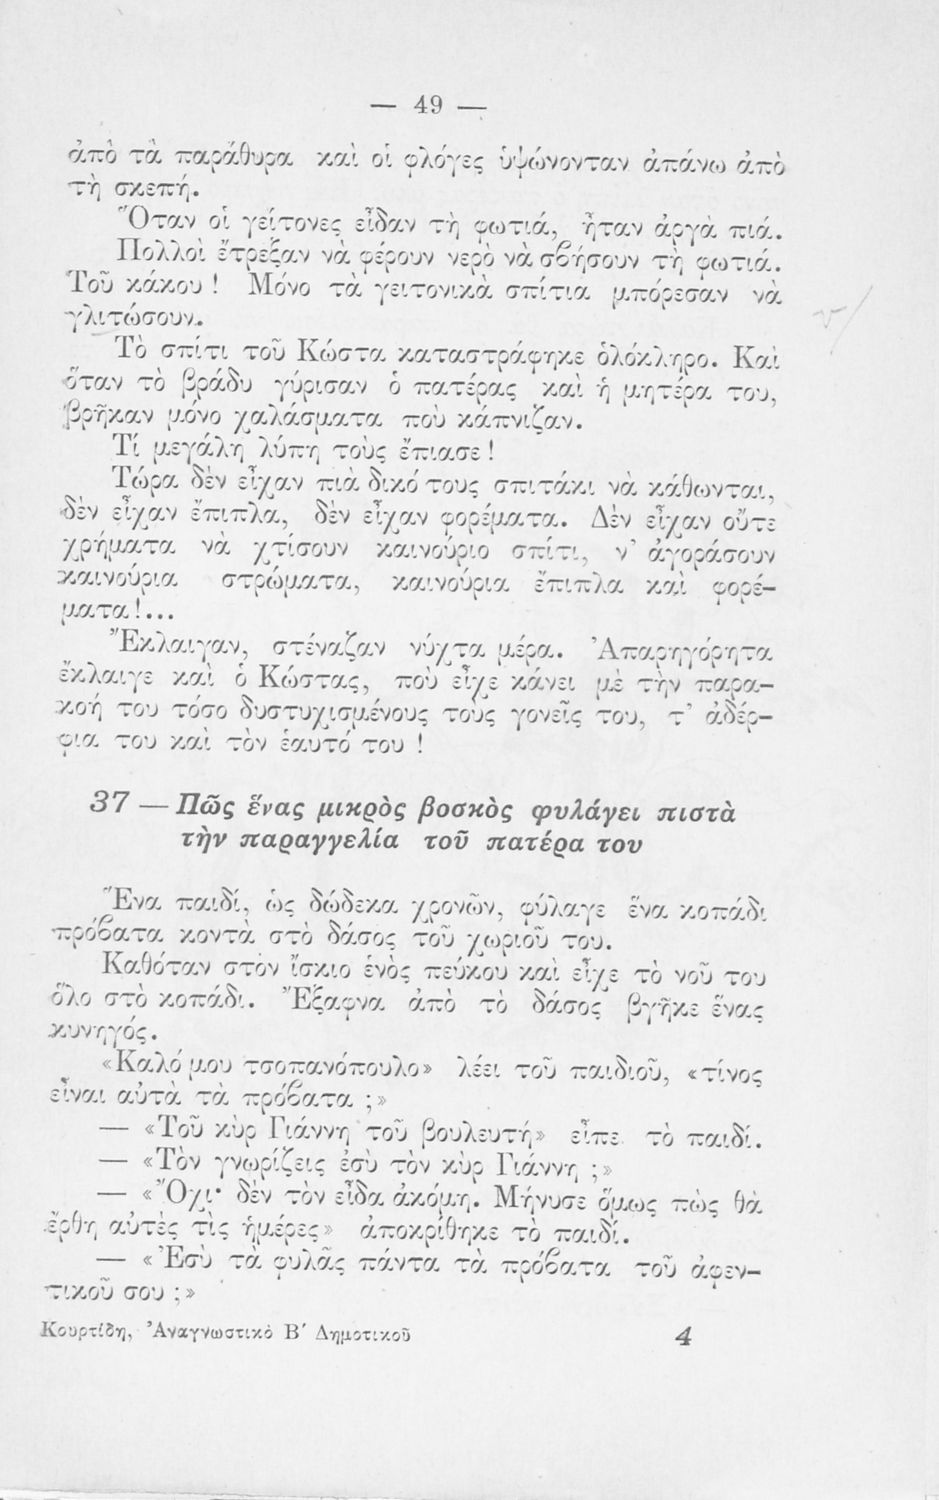 — 49 —
ἀπὸ τὰ παράθυρα καὶ οἱ φλόγες ὑψώνονταν ἀπάνω ἀπὸ
τὴ σκεπή.
Ὅταν οἱ γείτονες εἶδαν τὴ φωτιά, ἦταν ἀργὰ πιά.
Πολλοὶ ἔτρεξαν νὰ φέρουν νερὸ νὰ σβήσουν τὴ φωτιά.
Τοῦ κάκου ! Μόνο τὰ γειτονικὰ σπίτια μπόρεσαν νὰ
γλιτώσουν.
Τὸ σπίτι τοῦ Κώστα καταστράφηκε ὁλόκληρο. Καὶ
ὅταν τὸ βράδυ γύρισαν ὁ πατέρας καὶ ἡ μητέρα του,
βρῆκαν μόνο χαλάσματα ποὺ κάπνιζαν.
Τί μεγάλη λύπη τοὺς ἔπιασε !
Τώρα δὲν εἶχαν πιὰ δικό τους σπιτάκι νὰ κάθωνται,
δὲν εἶχαν ἔπιπλα, δὲν εἶχαν φορέματα. Δὲν εἶχαν οὔτε
χρήματα νὰ χτίσουν καινούριο σπίτι, ν’ ἀγοράσουν
καινούρια στρώματα, καινούρια ἔπιπλα καὶ φορέ-
ματα !...
Ἔκλαιγαν, στέναζαν νύχτα μέρα. Ἀπαρηγόρητα
ἔκλαιγε καὶ ὁ Κώστας, ποὺ εἶχε κάνει μὲ τὴν παρα-
κοή του τόσο δυστυχισμένους τοὺς γονεῖς του, τ’ ἀδέρ-
φια του καὶ τὸν ἑαυτό του !
37 — Πῶς ἕνας μικρὸς βοσκὸς φυλάγει πιστὰ
τὴν παραγγελία τοῦ πατέρα του
Ἕνα παιδί, ὡς δώδεκα χρονῶν, φύλαγε ἕνα κοπάδι
πρόβατα κοντὰ στὸ δάσος τοῦ χωριοῦ του.
Καθόταν στὸν ἴσκιο ἑνὸς πεύκου καὶ εἶχε τὸ νοῦ του
ὅλο στὸ κοπάδι. Ἔξαφνα ἀπὸ τὸ δάσος βγῆκε ἕνας
κυνηγός.
«Καλό μου τσοπανόπουλο» λέει τοῦ παιδιοῦ, «τίνος
εἶναι αὐτὰ τὰ πρόβατα ;»
— «Τοῦ κὺρ Γιάννη τοῦ βουλευτή» εἶπε τὸ παιδί.
— «Τὸν γνωρίζεις ἐσὺ τὸν κὺρ Γιάννη ;»
— «Ὄχι· δὲν τὸν εἶδα ἀκόμη. Μήνυσε ὅμως πὼς θὰ
ἔρθη αὐτὲς τὶς ἡμέρες» ἀποκρίθηκε τὸ παιδί.
— «Ἐσὺ τὰ φυλᾶς πάντα τὰ πρόβατα τοῦ ἀφεν-
τικοῦ σου ;»
Κουρτίδη, Ἀναγνωστικὸ Β′ Δημοτικοῦ 4